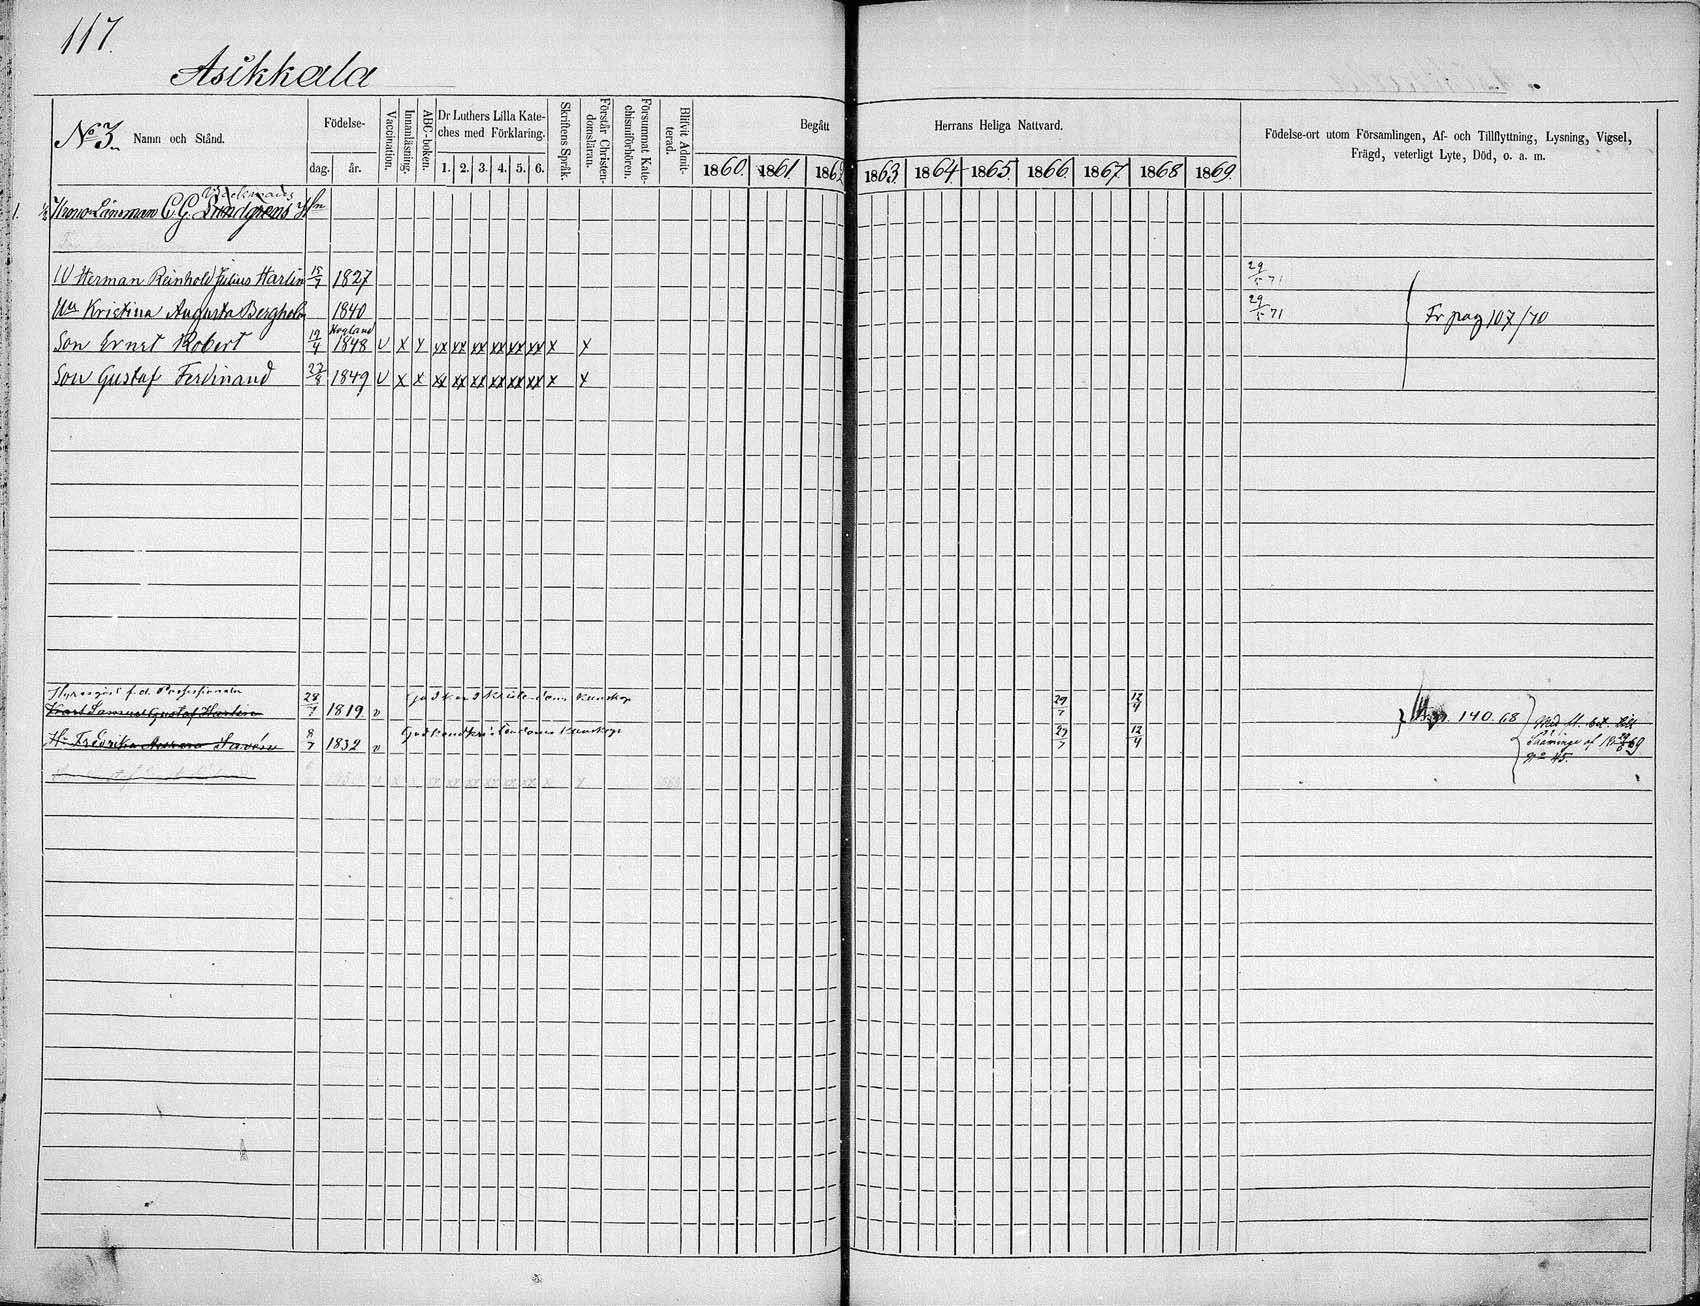 117.
Asikkala
No 3.
Namn och Stånd.
Födelse-
dag.
år.
Vaccination.
Innanläsning.
ABC-boken.
Dr Luthers Lilla Kate-
ches med Förklaring.
1. 2. 3. 4. 5. 6.
Skriftens Språk.
Förstår Christen-
domsläran.
Försummat Kate-
chismiförhören.
Blifvit Admit-
terad.
Begått
Herrans Heliga Nattvard.
1860. 1861 1862 1863. 1864 1865. 1866 1867 1868 1869
Födelse-ort utom Församlingen, Af- och Tillflyttning, Lysning, Vigsel,
Frägd, veterligt Lyte, Död, o. a. m.
1. 1/2 Krono-Länsman C. G. Lundgrens
Herman Reinhold Julius Harlin 15/7 1827 29/5 71
Kristina Augusta Bergholm 1840 29/5 71 Fr pag 107/70
Hogland
Son Ernst Robert 19/4 1848 v x x xx xx xx xx xx xx x x
Son Gustaf Ferdinand 27/8 1849 v x x xx xx xx xx xx xx x x
f. d. Professionalen Godkänd kristendoms kunskap
Karl Samuel Gustaf 28/7 1819 v 29/7 12/4 140. 68 Med M. bet. till
H. Fredrika 8/7 1832 v Godkänd kristendoms kunskap 29/7 12/4
No 45.